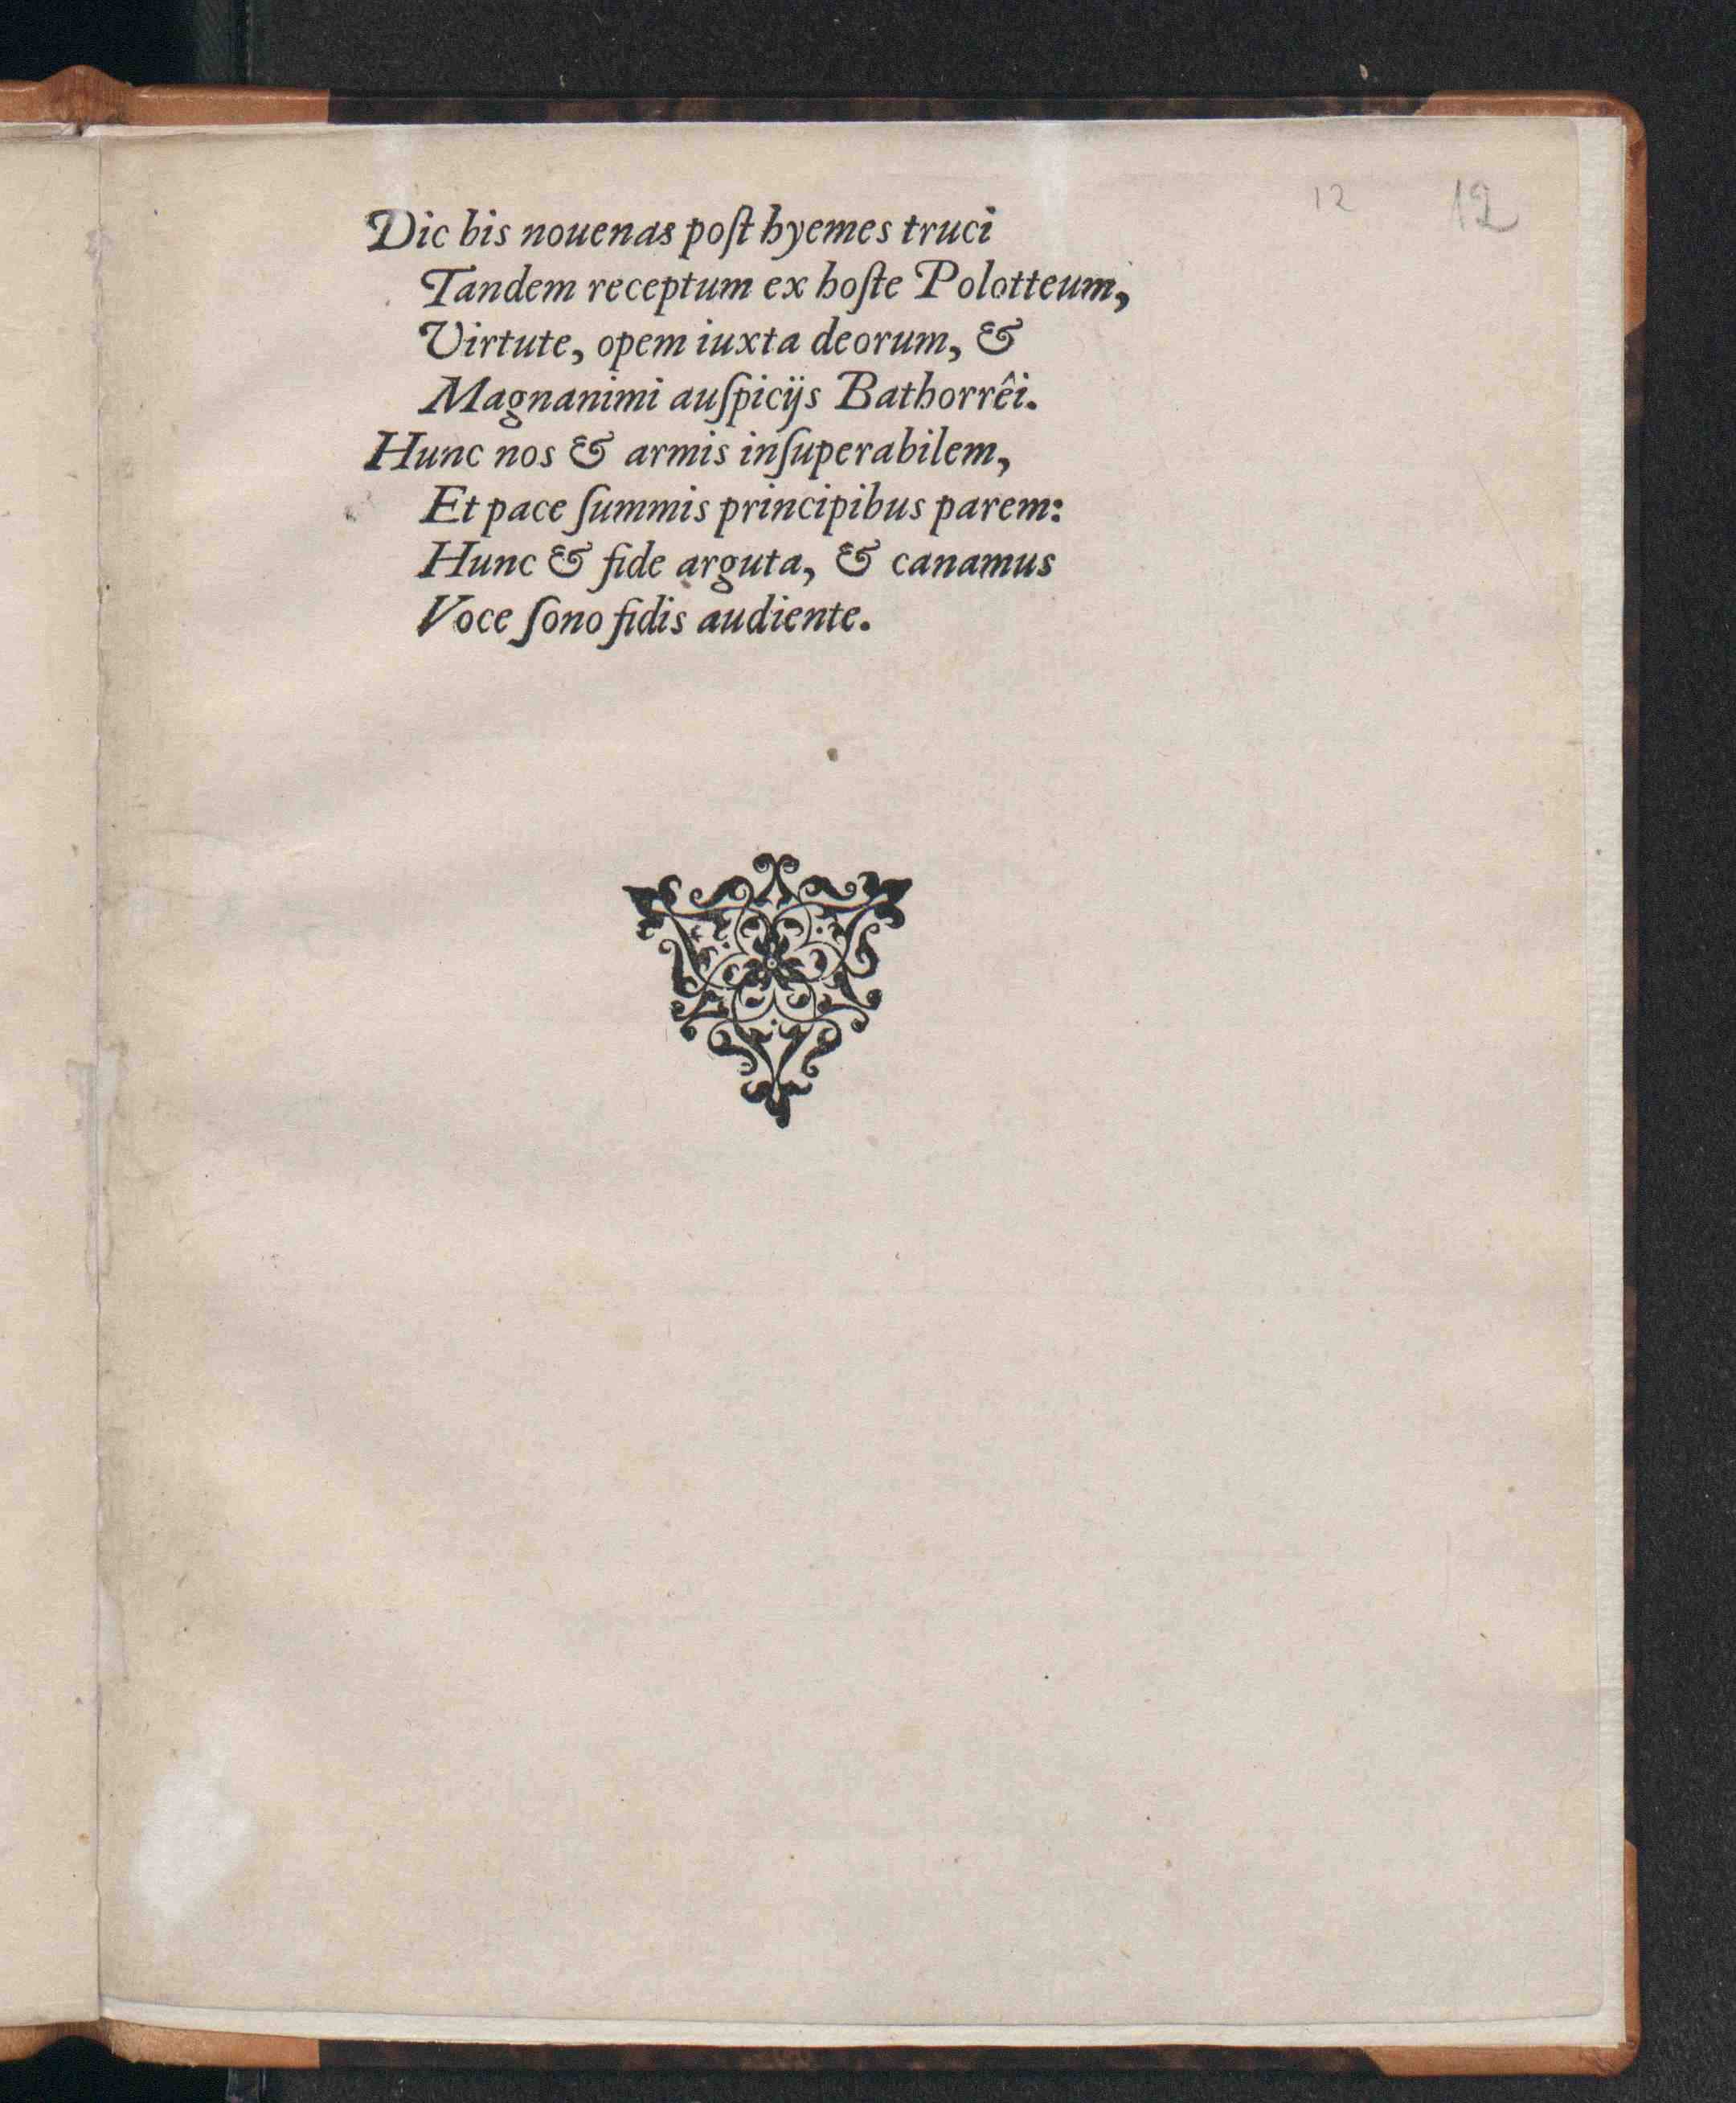 12 12
Dic bis nouenas poſt hyemes truci
Tandem receptum ex hoſte Polotteum,
Virtute, opem iuxta deorum, &
Magnanimi auſpicijs Bathorrêi.
Hunc nos & armis inſuperabilem,
Et pace ſummis principibus parem:
Hunc & fide arguta, & canamus
Voce ſono fidis audiente.